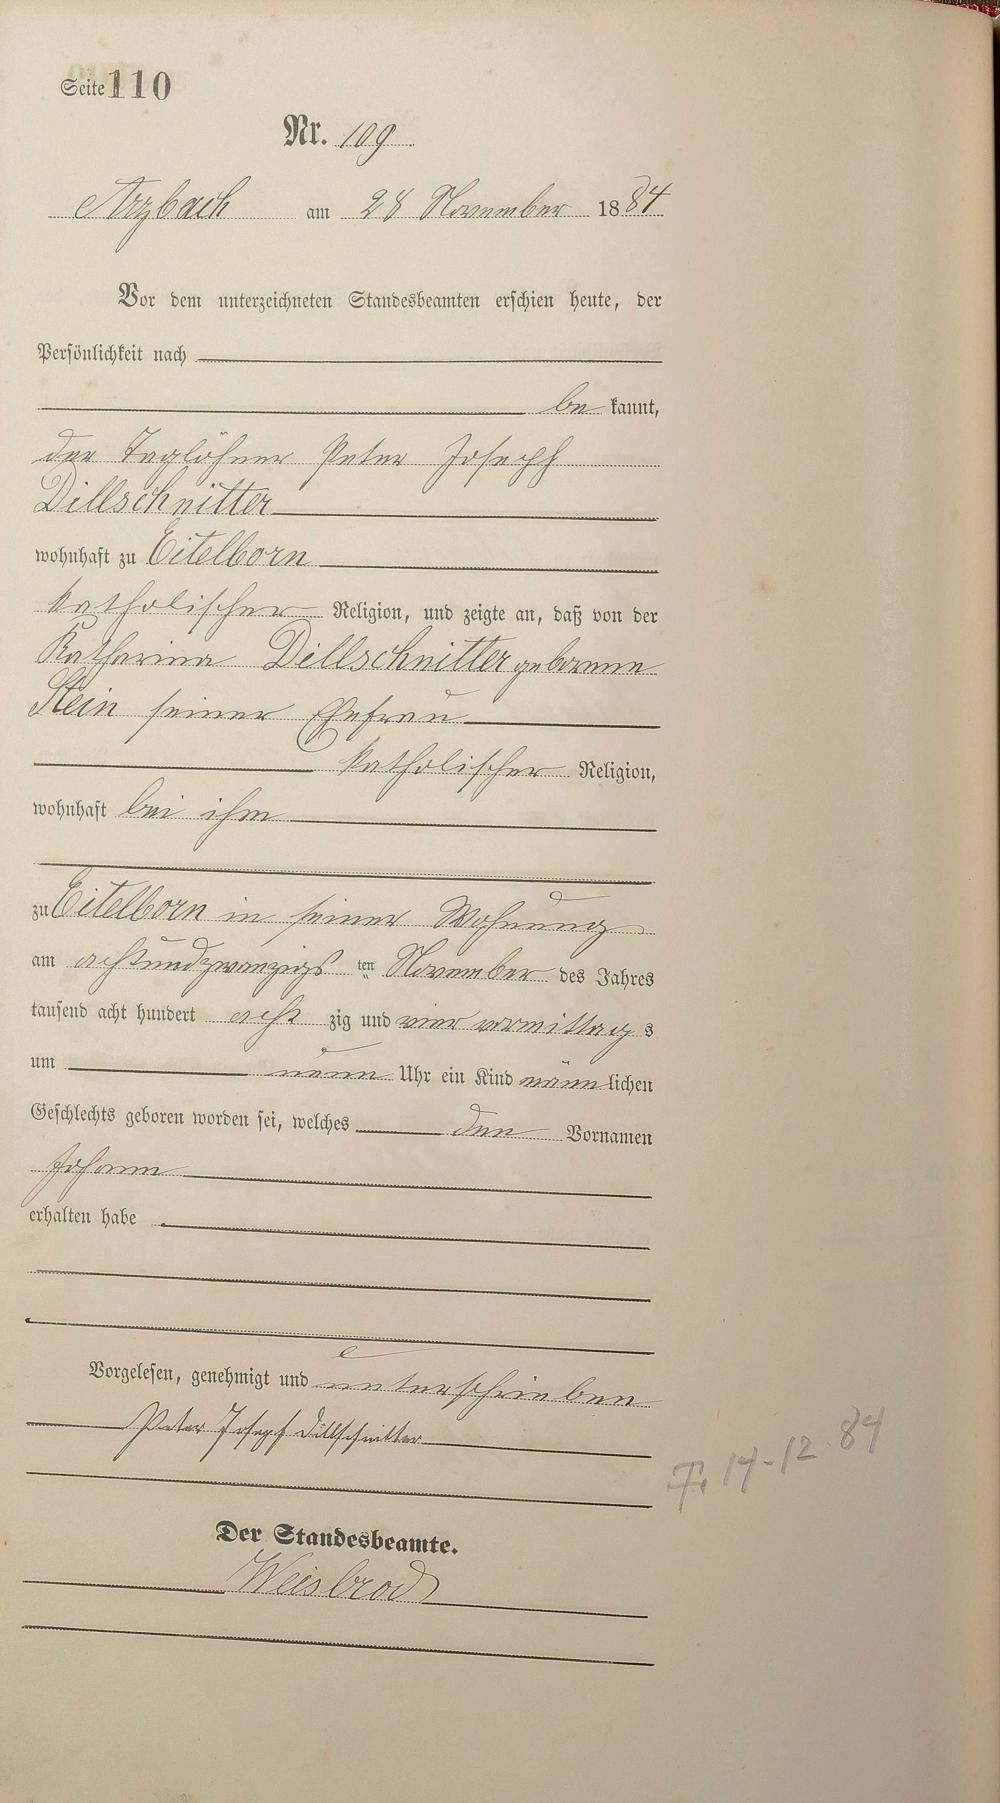 Seite 110
Nr. 109
Arzbach am 28 November 1884
Vor dem unterzeichneten Standesbeamten erschien heute, der
Persönlichkeit nach
be kannt,
der Taglöhner Peter Joseph
Dillschnitter
wohnhaft zu Eitelborn
katholischer Religion, und zeigte an, daß von der
Katharina Dillschnitter geborenne
Stein seiner Ehefrau
katholischer Religion,
wohnhaft bei ihm
zu Eitelborn in seiner Wohnung
am achtundzwanzigs ten November des Jahres
tausend acht hundert acht zig und vier vormittag s
um neun Uhr ein Kind männ lichen
Geschlechts geboren worden sei, welches den Vornamen
Johann
erhalten habe
Vorgelesen, genehmigt und unterschrieben
Peter Joseph Dillschnitter
14-12.84
Der Standesbeamte.
Weisbrod